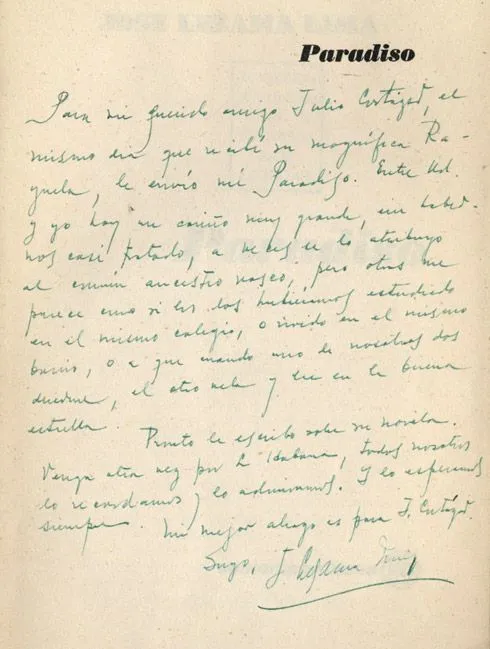 Paradiso
Para mi querido amigo Julio Cortázar, el
mismo día que recibí su magnífica Ra-
yuela, le envío mi Paradiso. Entre Ud.
y yo hay un cariño muy grande, sin haber-
nos casi tratado, a veces se lo atribuyo
al común ancestro vasco, pero otras me
parece como si los dos hubiéramos estudiado
en el mismo colegio, o vivido en el mismo
barrio, o a que cuando uno de nosotros dos
duerme, el otro vela y lee en la buena
estrella. Pronto le escribo sobre su novela.
Venga otra vez por L Habana, todos nosotros
lo recordamos y lo admiramos. Y lo esperamos
siempre. Mi mejor abrazo es para J. Cortázar.
Suyo, J Lezama Lima